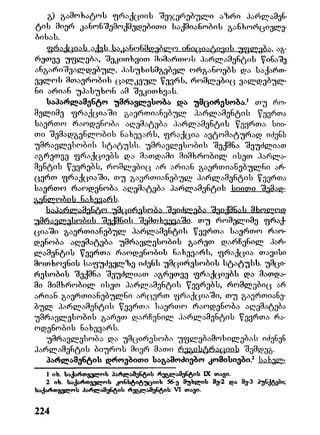 გ) გამოხატოს ფრაქციის შეჯერებული აზრი პარლამენ-
ტის მიერ განოწმოქმედებითი საქმიანობის განხორციელე-
ბისას.
ფრაქციას აქვს საკანონმდებლო ინიციატივის უფლება, აგ-
რეთვე უფლება, შეკითხვით მიმართოს პარლამენტის წინაშე
ანგარიშვალდებულ, პასუხისმგებელ ორგანოებს და საქართ-
ველოს მთავრობის ცალკეულ წევრს, რომლებიც ვალდებულ-
ნი არიან უპასუხონ ამ შეკითხვას.
საპარლამენტო უმრავლესობა და უმცირესობა.¹ თუ რო-
მელიმე ფრაქციაში გაერთიანებულ პარლამენტის წევრთა
საერთო რაოდენობა აღემატება პარლამენტის წევრთა სიი-
თი შემადგენლობის ნახევარს, ფრაქცია ავტომატურად იძენს
უმრავლესობის სტატუსს. უმრავლესობის შექმნა შეუძლიათ
აგრეთვე ფრაქციებს და მათდამი მიმხრობილ ისეთ პარლა-
მენტის წევრებს, რომლებიც არ არიან გაერთიანებულნი არ-
ცერთ ფრაქციაში, თუ გაერთიანებულ პარლამენტის წევრთა
საერთო რაოდენობა აღემატება პარლამენტის სიითი შემად-
გენლობის ნახევარს.
საპარლამენტო უმცირესობა შეიძლება შეიქმნას მხოლოდ
უმრავლესობის შექმნის შემთხვევაში. თუ რომელიმე ფრაქ-
ციაში გაერთიანებულ პარლამენტის წევრთა საერთო რაო-
დენობა აღემატება უმრავლესობის გარეთ დარჩენილ პარ-
ლამენტის წევრთა რაოდენობის ნახევარს, ფრაქცია თავისი
მოთხოვნის საფუძველზე იძენს უმცირესობის სტატუსს. უმცი-
რესობის შექმნა შეუძლიათ აგრეთვე ფრაქციებს და მათდა-
მი მიმხრობილ ისეთ პარლამენტის წევრებს, რომლებიც არ
არიან გაერთიანებულნი არცერთ ფრაქციაში, თუ გაერთიანე-
ბულ პარლამენტის წევრთა საერთო რაოდენობა აღემატება
უმრავლესობის გარეთ დარჩენილ პარლამენტის წევრთა რა-
ოდენობის ნახევარს.
უმრავლესობა და უმცირესობა უფლებამოსილებას იძენენ
პარლამენტის ბიუროს მიერ მათი რეგისტრაციის შემდეგ.
პარლამენტის დროებითი საგამოძიებო კომისიები.² სახელ-
1 იხ. საქართველოს პარლამენტის რეგლამენტის IX თავი.
2 იხ. საქართველოს კონსტიტუციის 56-ე მუხლის მე-2 და მე-3 პუნქტები;
საქართველოს პარლამენტის რეგლამენტის VI თავი.
224